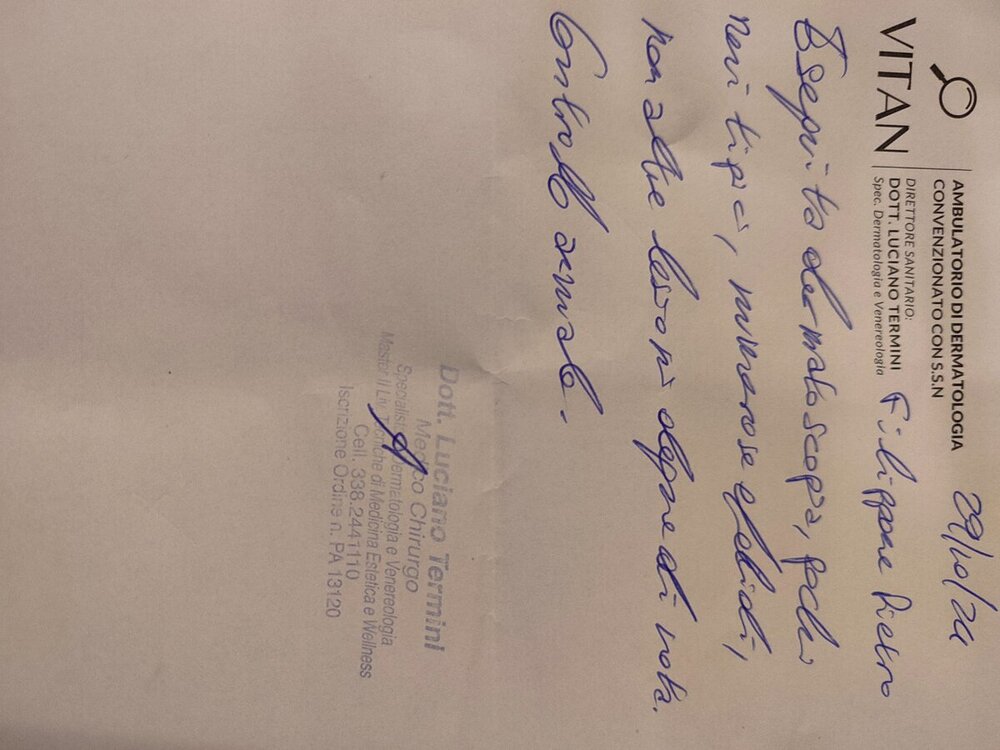 VITAN
AMBULATORIO DI DERMATOLOGIA
CONVENZIONATO CON S.S.N
DIRETTORE SANITARIO:
DOTT. LUCIANO TERMINI
Spec. Dermatologia e Venereologia
29/10/24
Filippone Pietro
Eseguita dermatoscopia, pochi
nevi tipici, numerose efelidi,
non altre lesioni degne di nota.
Controllo annuale.
Dott. Luciano Termini
Medico Chirurgo
Specialista Dermatologia e Venereologia
Master II Liv. Tecniche di Medicina Estetica e Wellness
Cell. 338.2441110
Iscrizione Ordine n. PA 13120